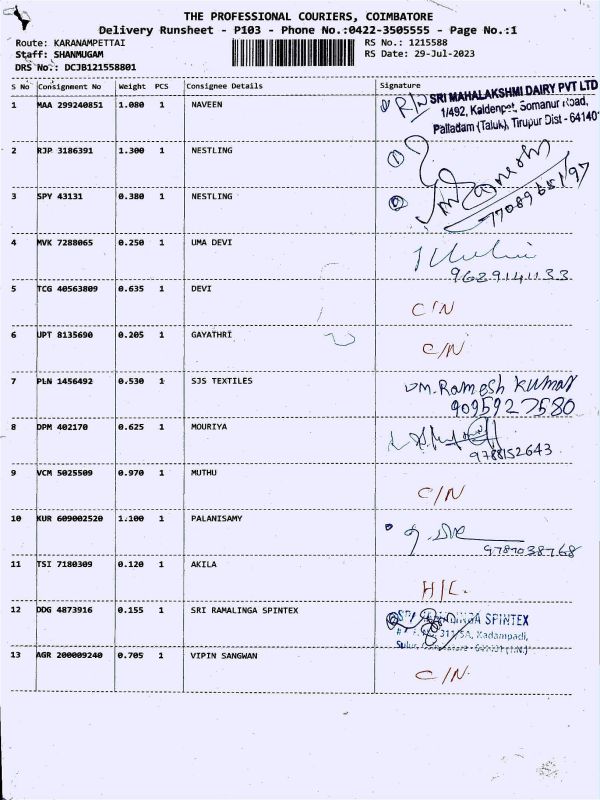 THE PROFESSIONAL COURIERS, COIMBATORE
Delivery Runsheet - P103 - Phone No.:0422-3505555 - Page No.:1
Route: KARANAMPETTAI RS No.: 1215588
Staff: SHANMUGAM RS Date: 29-Jul-2023
DRS No.: DCJB121558801
S No Consignment No Weight PCS Consignee Details Signature
1 MAA 299240851 1.080 1 NAVEEN R/N SRI MAHALAKSHMI DAIRY PVT LTD
1/492, Kaldenpet, Somanur Road,
Palladam (Taluk), Tirupur Dist - 64140
2 RJP 3186391 1.300 1 NESTLING 1
3 SPY 43131 0.380 1 NESTLING 2
4 MVK 7288065 0.250 1 UMA DEVI
9629141133
5 TCG 40563809 0.635 1 DEVI C/N
6 UPT 8135690 0.205 1 GAYATHRI C/N
7 PLN 1456492 0.530 1 SJS TEXTILES M. Ramesh Kumar
9095927580
8 DPM 402170 0.625 1 MOURIYA
9788152643
9 VCM 5025509 0.970 1 MUTHU C/N
10 KUR 609002520 1.100 1 PALANISAMY
9787038768
11 TSI 7180309 0.120 1 AKILA H/C.
12 DDG 4873916 0.155 1 SRI RAMALINGA SPINTEX SPINTEX
Kadampadi,
Sulur,
13 AGR 200009240 0.705 1 VIPIN SANGWAN C/N